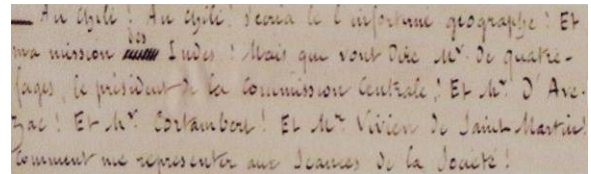 — Au Chili ! Au Chili ! s'écria le l'infortuné géographe ! Et
ma mission des Indes ! Mais que vont dire Mr. de Quatre-
fages, le président de la Commission Centrale ! Et Mr. D'Ave-
zac ! Et Mr. Cortambert ! Et Mr. Vivien de Saint Martin !
Comment me représenter aux Séances de la Société !